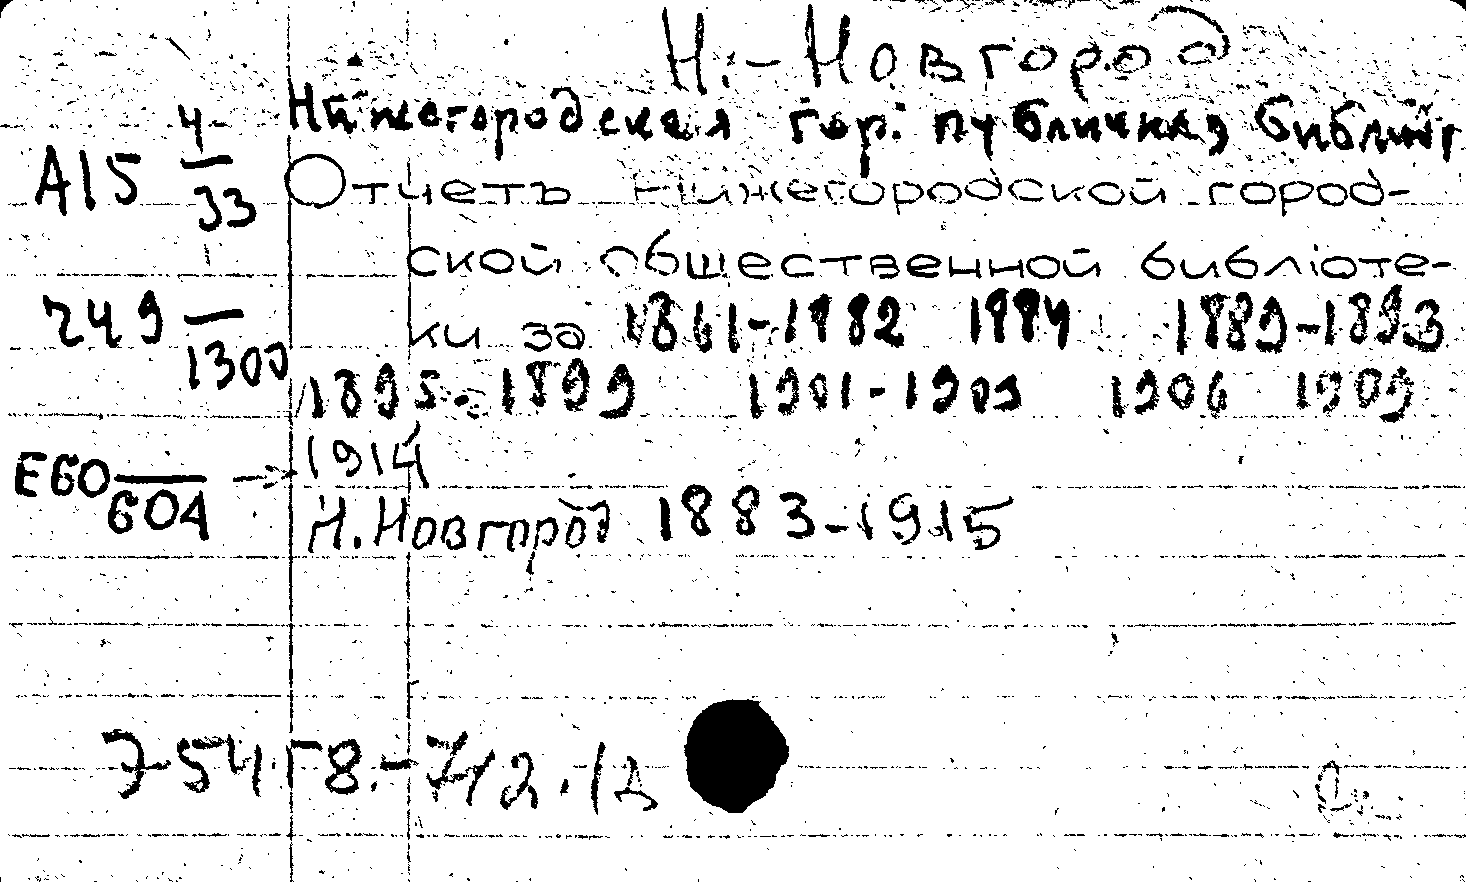 Н.-Новгород
Нижегородская гор. публичная библиот
А15 4/33 Отчетъ Нижегородской город-
ской общественной библіоте-
249 —/1300 ки за 1861-1882 1884 1889-1893
1895-1899 1901-1903 1906 1909
Е60 —/604 → 1914
Н.Новгород 1883-1915
7-54.Г8.-